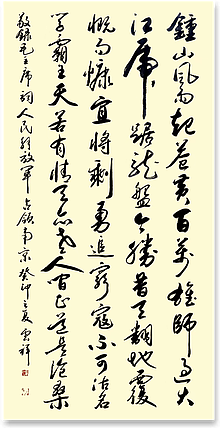 鍾山風雨起苍黄百萬雄師过大
江虎踞龙盤今勝昔天翻地覆
慨而慷宜将剩勇追窮寇不可沽名
学霸王天若有情天亦老人间正道是沧桑
敬録毛主席詞人民解放軍占领南京癸卯之夏祥